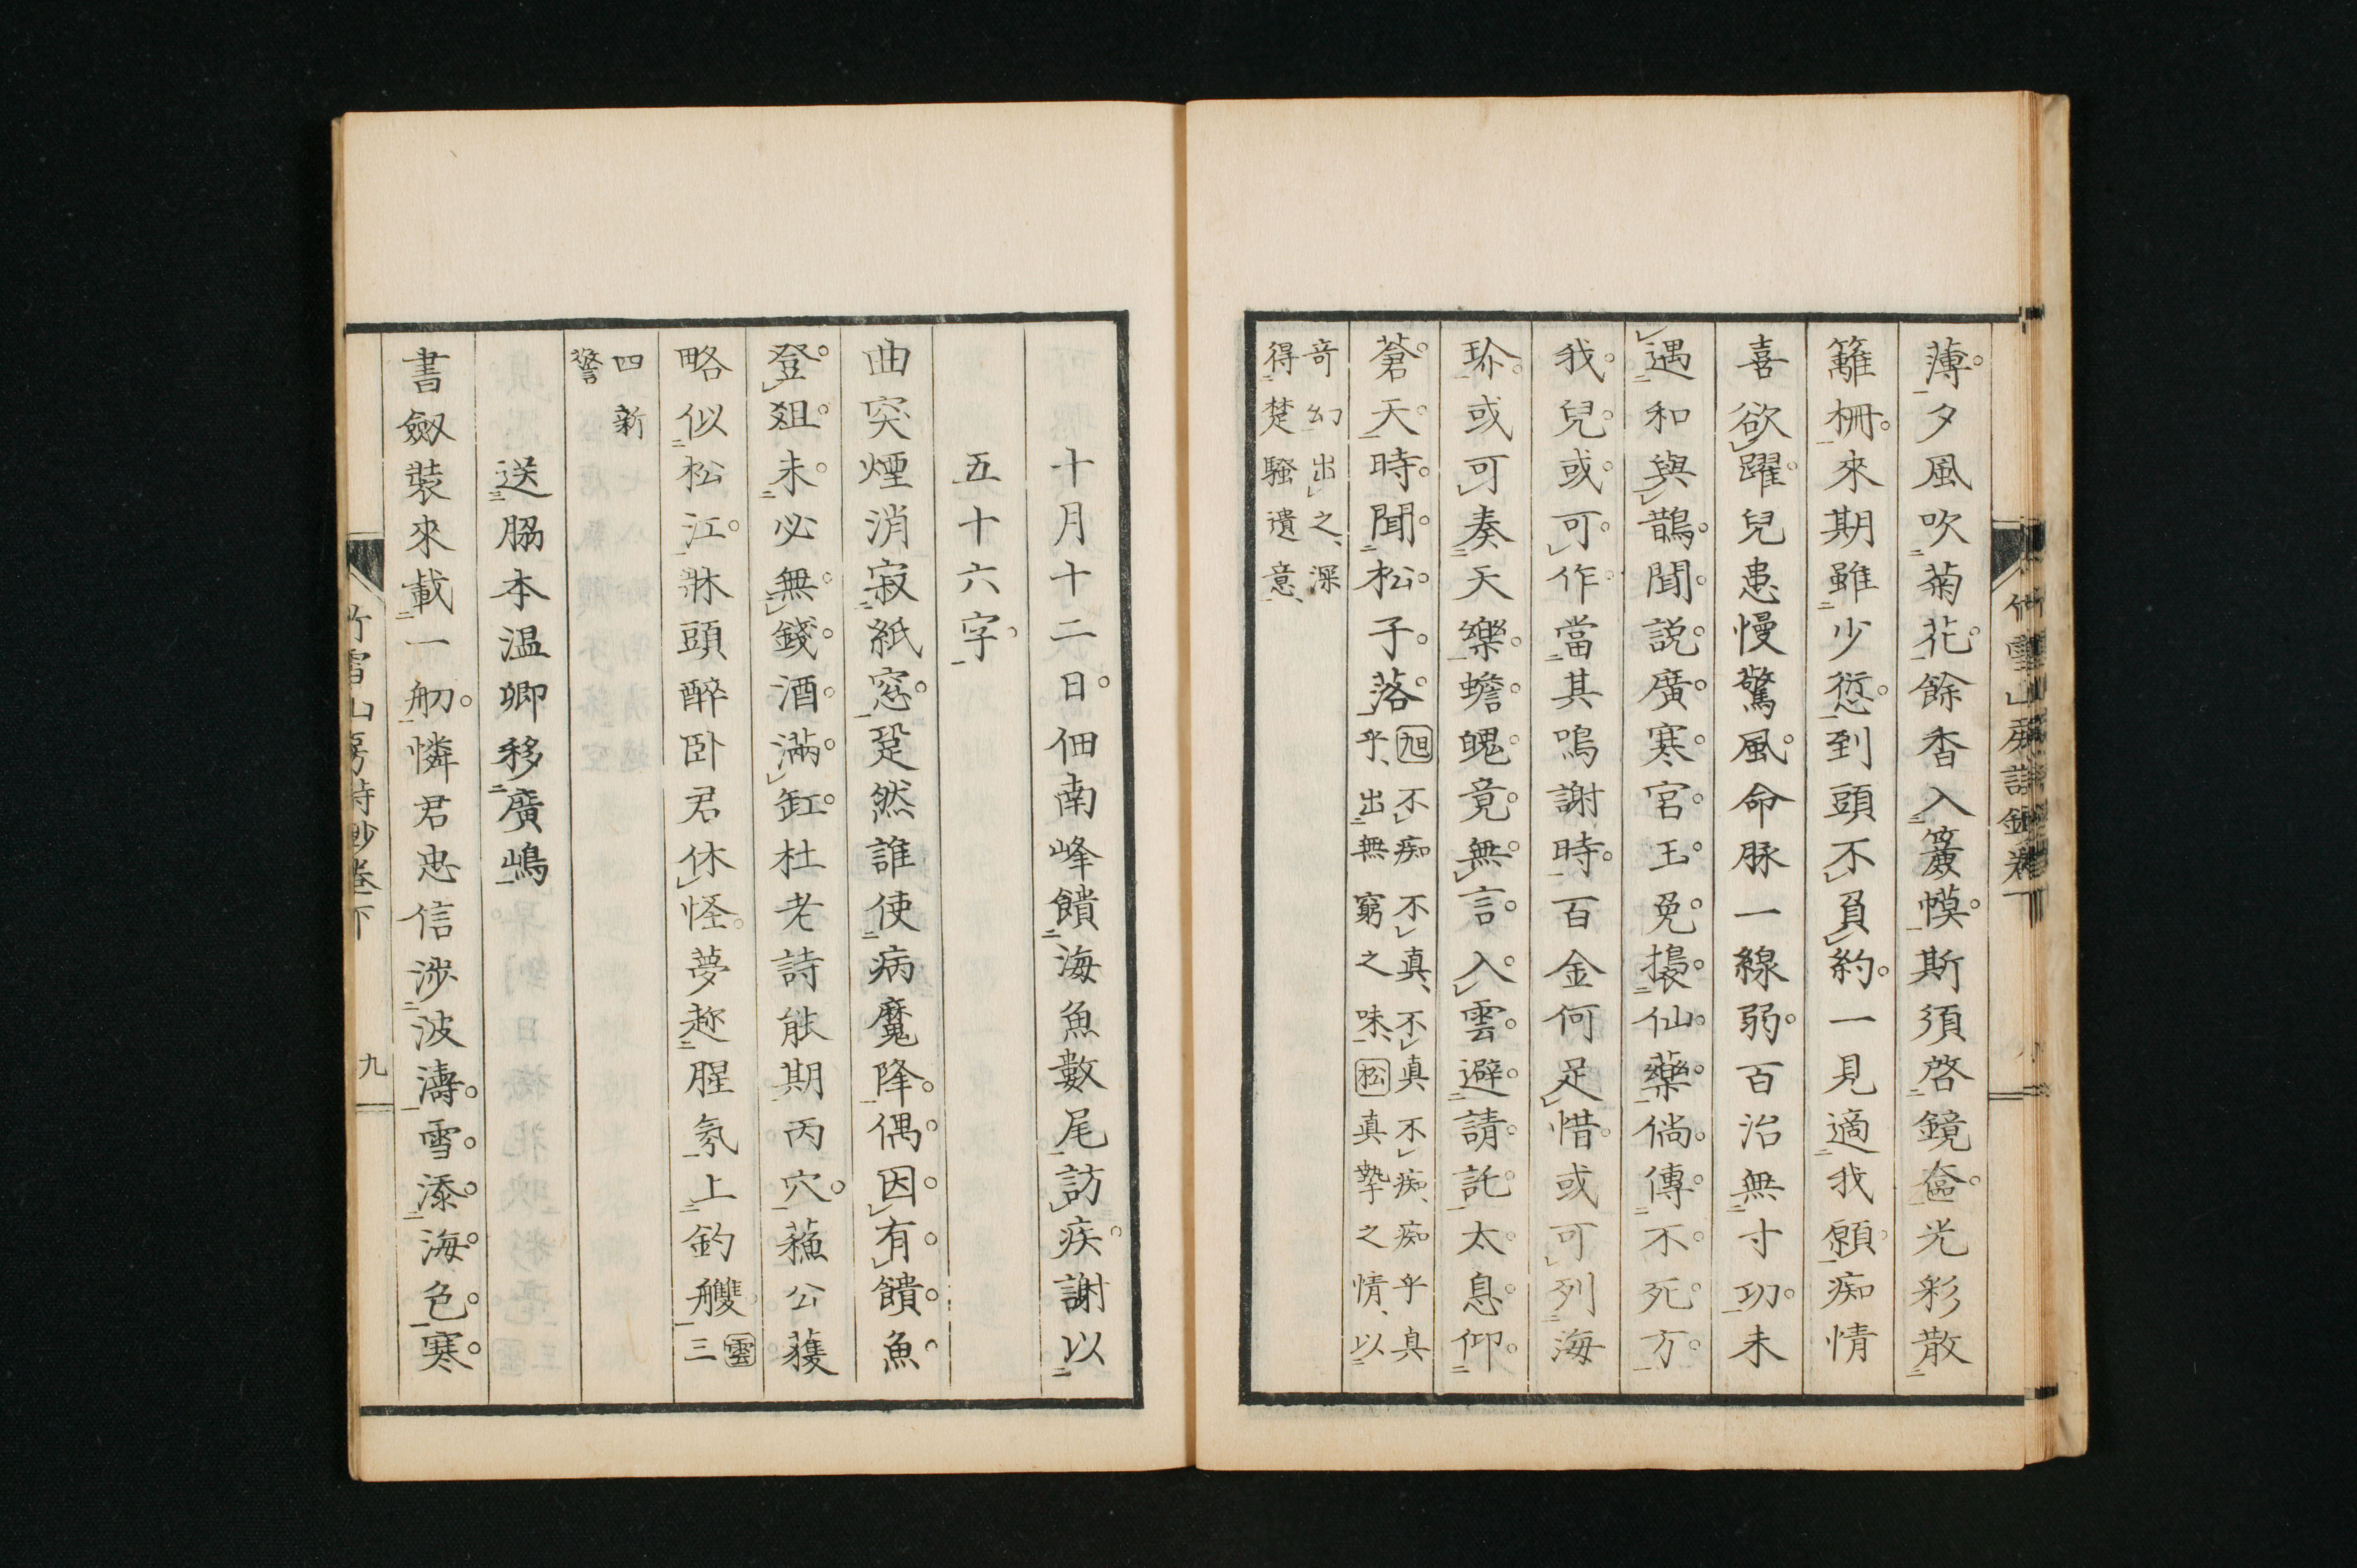 薄。夕風吹菊花。餘香入簾幙。斯須啓鏡奩。光彩散
籬柵。來期雖少愆。到頭不負約。一見適我願。痴情
喜欲躍。兒患慢驚風。命脉一線弱。百治無寸功。未
遇和與鵲。聞説廣寒宮。玉兔擣仙藥。倘傳不死方。
我兒或可作。當其嗚謝時。百金何足惜。或可列海
珎。或可奏天樂。蟾魄竟無言。入雲避請託。太息仰
蒼天。時聞松子落。
旭不痴不真、不真不痴、痴乎真
乎、出無窮之味、松真摯之情、以
奇幻出之、深
得楚騷遺意、
十月十二日。佃南峰饋海魚數尾。訪疾。謝以
五十六字。
曲突煙消寂紙窓。跫然誰使病魔降。偶因有饋魚
登爼。未必無錢酒滿缸。杜老詩能期丙穴。蘓公獲
略似松江。牀頭醉卧君休怪。夢趂腥氛上釣艭
雲三
四新
警
送脇本温卿移廣嶋
書劔裝來載一舠。憐君忠信渉波濤。雪添海色寒。
竹雪山房詩鈔卷下
九